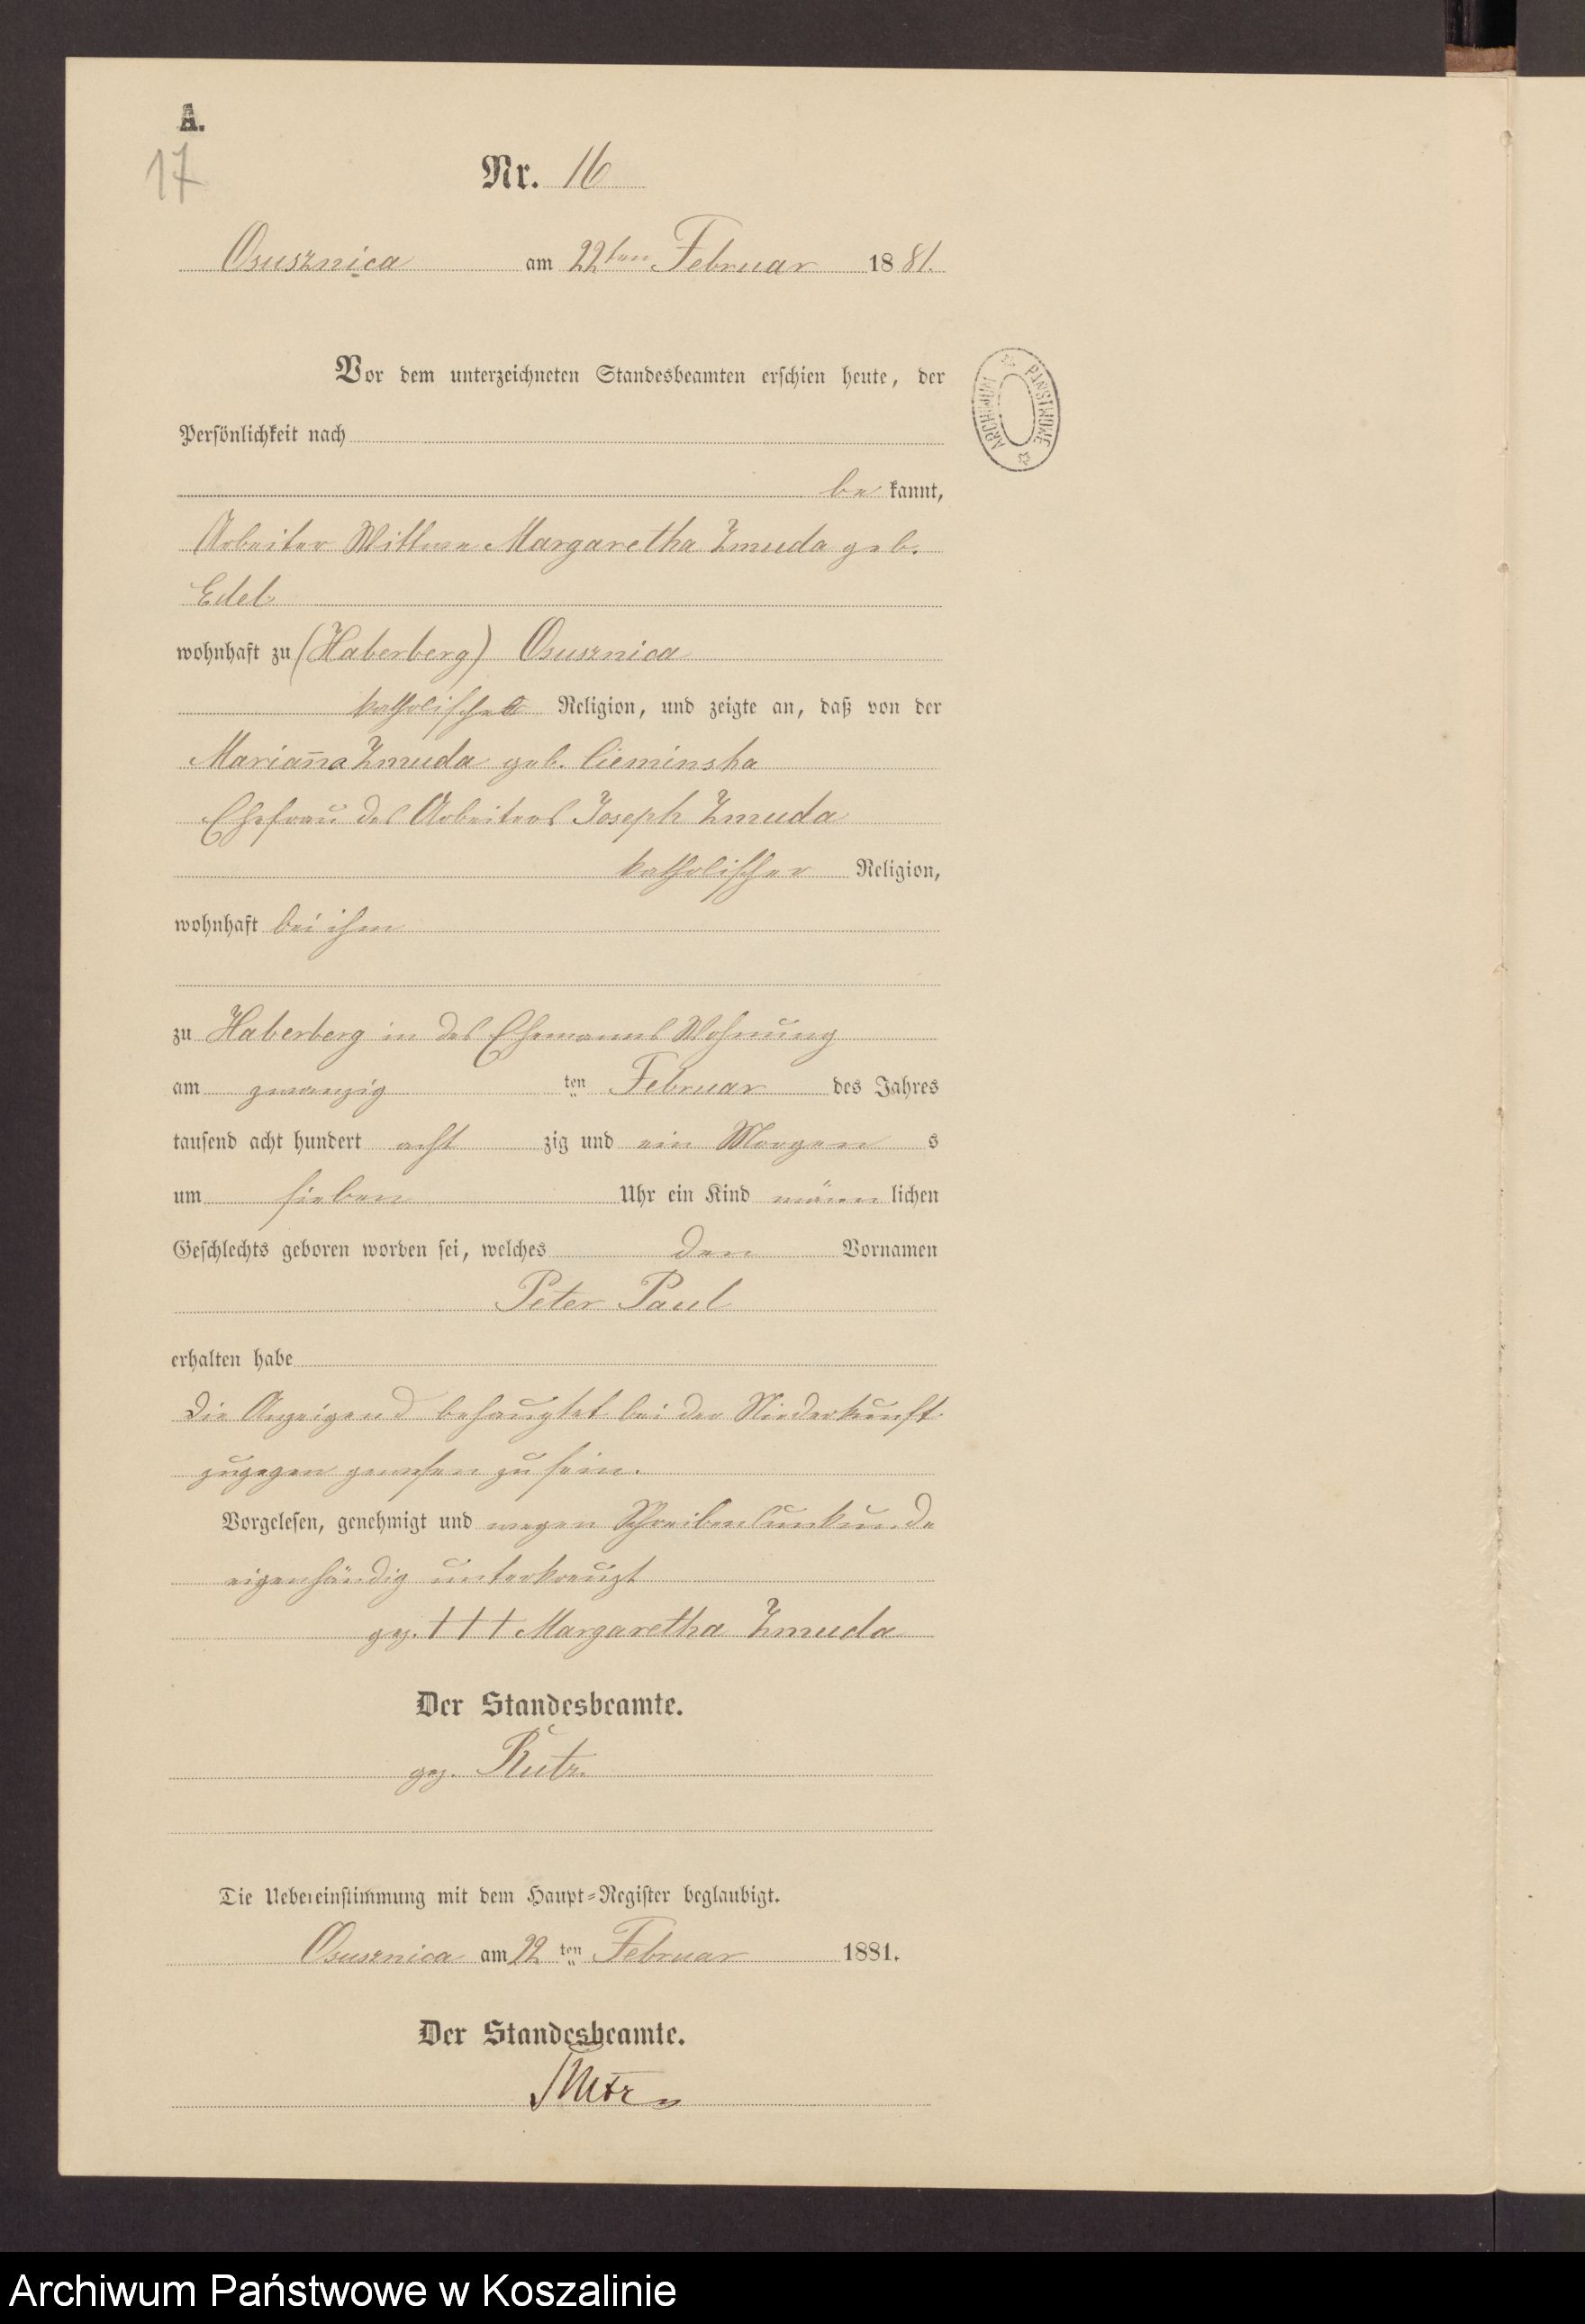 A.
17
Nr. 16
Osusznica am 22ten Februar 1881.
Vor dem unterzeichneten Standesbeamten erschien heute, der
Persönlichkeit nach
be kannt,
Arbeiter Wittwe Margaretha Zmuda geb.
Edel
wohnhaft zu (Haberberg) Osusznica
katholischer Religion, und zeigte an, daß von der
Marian̄a Zmuda geb. Cieminska
Ehefrau des Arbeiters Joseph Zmuda
katholischer Religion,
wohnhaft bei ihm
zu Haberberg in des Ehemanns Wohnung
am zwanzig ten Februar des Jahres
tausend acht hundert acht zig und ein Morgen s
um sieben Uhr ein Kind männ lichen
Geschlechts geboren worden sei, welches den Vornamen
Peter Paul
erhalten habe
Die Anzeigend behauptet bei der Niederkunft
zugegen gewesen zu sein.
Vorgelesen, genehmigt und wegen Schreibensunkunde
eigenhändig unterkreuzt
gez. ††† Margaretha Zmuda
Der Standesbeamte.
gez. Rutz.
Die Uebereinstimmung mit dem Haupt-Register beglaubigt.
Osusznica am 22 ten Februar 1881.
Der Standesbeamte.
Rutz
ARCHIWUM PAŃSTWOWE
Archiwum Państwowe w Koszalinie